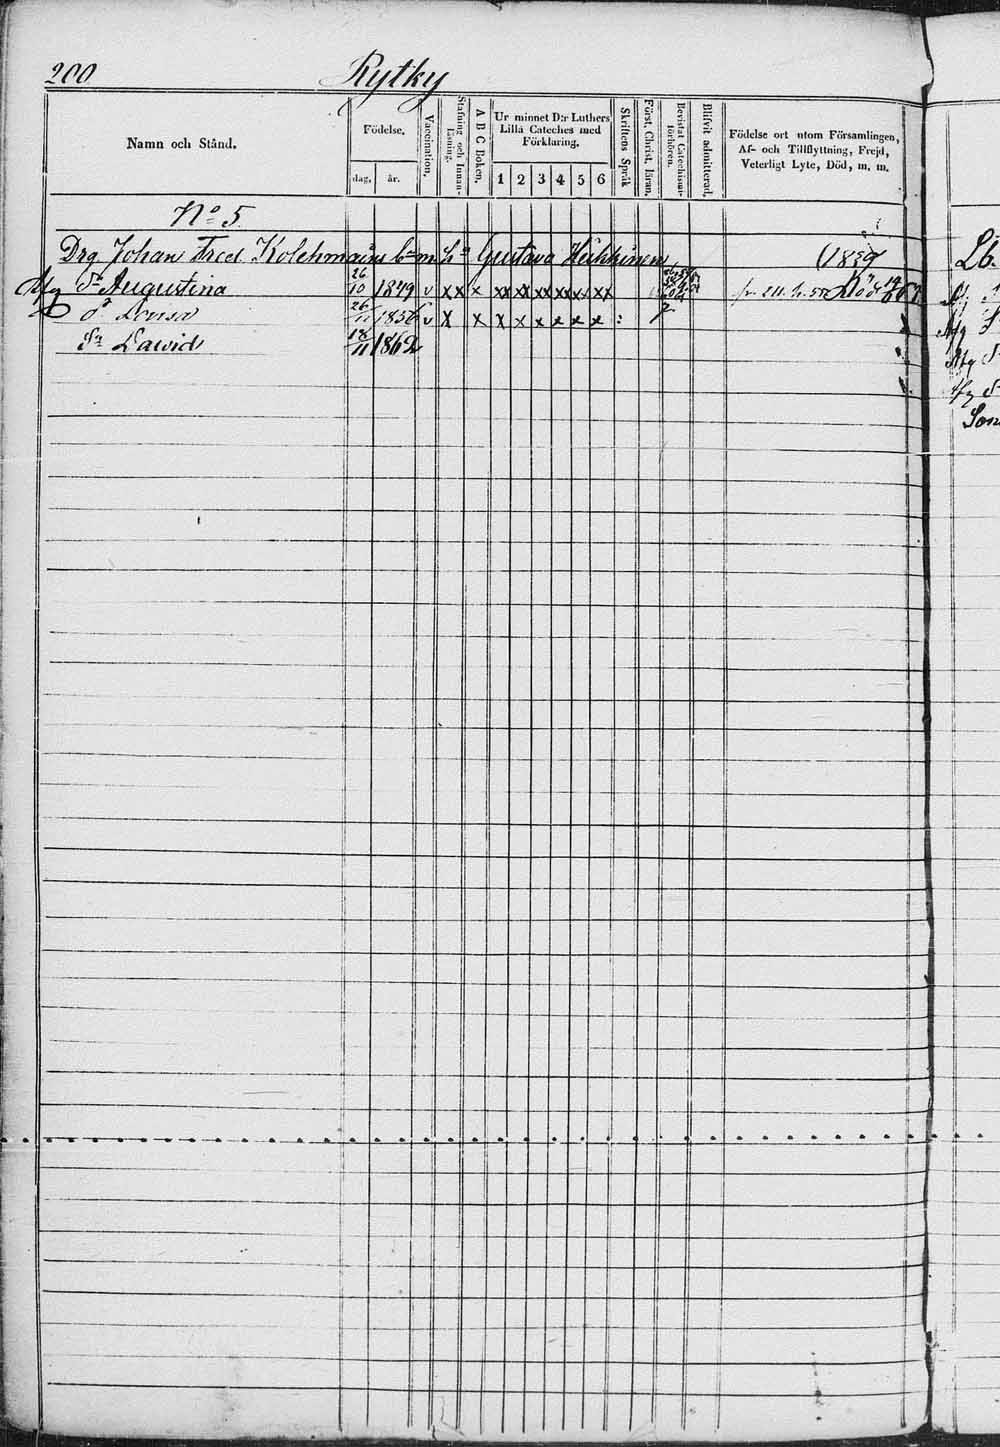 200 Rytky
Namn och Stånd.
Födelse.
dag. år.
Vaccination.
Stafning och Innanläsning.
A B C Boken.
Ur minnet D:r Luthers Lilla Cateches med Förklaring.
1 2 3 4 5 6
Skriftens Språk
Först. Christ. läran.
Bevistat Catechismiförhören.
Blifvit admitterad.
Födelse ort utom Församlingen, Af- och Tillflyttning, Frejd, Veterligt Lyte, Död, m. m.
No 5.
Drg Johan Fred. Kolehmains b:n m. h:n Gustava Heikkinen (1859)
Afg Dr Augustina 26/10 1849 v x x x xx xx xx xx xx xx Död
d:o Lovisa 26/11 1856 v x x x x x x x x :
Sn Dawid 18/11 1862